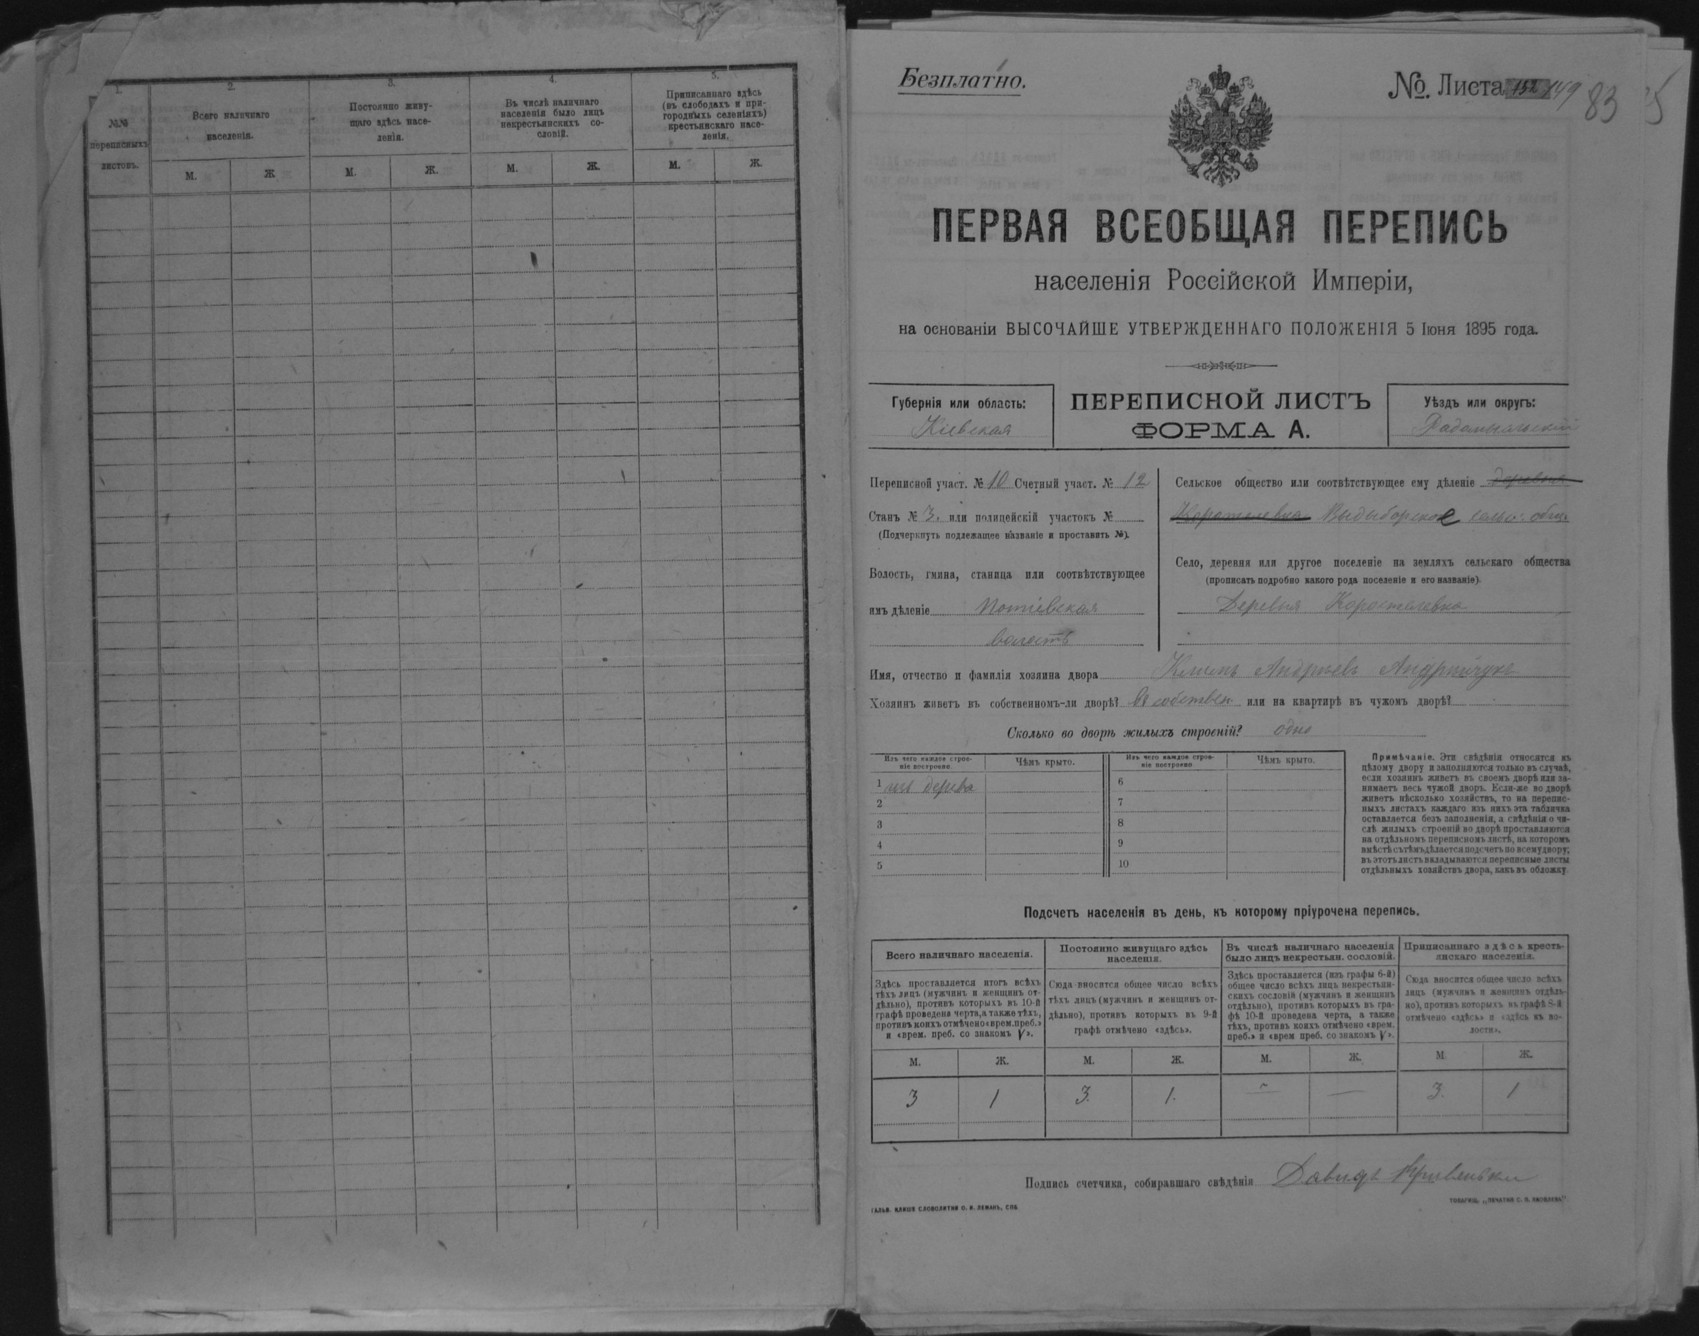 1.
2.
3.
4.
5.
№№
переписныхъ
листовъ.
Всего наличнаго
населенія.
Постоянно живу-
щаго здѣсь насе-
ленія.
Въ числѣ наличнаго
населенія было лицъ
некрестьянскихъ со-
словій.
Приписаннаго здѣсь
(въ слободахъ и при-
городныхъ селеніяхъ)
крестьянскаго насе-
ленія.
М.
Ж
М.
Ж.
М.
Ж.
М.
Ж.
Безплатно.
№. Листа 152 149
83
ПЕРВАЯ ВСЕОБЩАЯ ПЕРЕПИСЬ
населенія Россійской Имперіи,
на основаніи ВЫСОЧАЙШЕ УТВЕРЖДЕННАГО ПОЛОЖЕНІЯ 5 Іюня 1895 года.
Губернія или область:
Кіевская
ПЕРЕПИСНОЙ ЛИСТЪ
ФОРМА А.
Уѣздъ или округъ:
Радомысльскій
Переписной участ. № 10 Счетный участ. № 12
Станъ № 3. или полицейскій участокъ №
(Подчеркнуть подлежащее названіе и проставить №).
Волость, гмина, станица или соотвѣтствующее
имъ дѣленіе Потіевская
волость
Сельское общество или соотвѣтствующее ему дѣленіе деревня
Коростелевка Выдыборское сельс. общ.
Село, деревня или другое поселеніе на земляхъ сельскаго общества
(прописать подробно какого рода поселеніе и его названіе).
Деревня Коростелевка
Имя, отчество и фамилія хозяина двора Климъ Андреевъ
Хозяинъ живетъ въ собственномъ-ли дворѣ? въ собствен или на квартирѣ въ чужомъ дворѣ?
Сколько во дворѣ жилыхъ строеній? одно
Изъ чего каждое строе-
ніе построено.
Чѣмъ крыто.
Изъ чего каждое строе-
ніе построено.
Чѣмъ крыто.
1 изъ дерева
2
3
4
5
6
7
8
9
10
Примѣчаніе. Эти свѣдѣнія относятся къ
цѣлому двору и заполняются только въ случаѣ,
если хозяинъ живетъ въ своемъ дворѣ или за-
нимаетъ весь чужой дворъ. Если-же во дворѣ
живетъ нѣсколько хозяйствъ, то на перепис-
ныхъ листахъ каждаго изъ нихъ эта табличка
оставляется безъ заполненія, а свѣдѣнія о чи-
слѣ жилыхъ строеній во дворѣ проставляются
на отдѣльномъ переписномъ листѣ, на которомъ
вмѣстѣ съ тѣмъ дѣлается подсчетъ по всему двору;
въ этотъ листъ вкладываются переписные листы
отдѣльныхъ хозяйствъ двора, какъ въ обложку.
Подсчетъ населенія въ день, къ которому пріурочена перепись.
Всего наличнаго населенія.
Здѣсь проставляется итогъ всѣхъ
тѣхъ лицъ (мужчинъ и женщинъ от-
дѣльно), противъ которыхъ въ 10-й
графѣ проведена черта, а также тѣхъ,
противъ коихъ отмѣчено «врем. преб.»
и «врем. преб. со знакомъ V».
Постоянно живущаго здѣсь
населенія.
Сюда вносится общее число всѣхъ
тѣхъ лицъ (мужчинъ и женщинъ от-
дѣльно), противъ которыхъ въ 9-й
графѣ отмѣчено «здѣсь».
Въ числѣ наличнаго населенія
было лицъ некрестьян. сословій.
Здѣсь проставляется (изъ графы 6-й)
общее число всѣхъ лицъ некрестьян-
скихъ сословій (мужчинъ и женщинъ
отдѣльно), противъ которыхъ въ гра-
фѣ 10-й проведена черта, а также
тѣхъ, противъ коихъ отмѣчено «врем.
преб.» и «врем преб. со знакомъ V».
Приписаннаго здѣсь кресть-
янскаго населенія.
Сюда вносится общее число всѣхъ
лицъ (мужчинъ и женщинъ отдѣль-
но), противъ которыхъ въ графѣ 8-й
отмѣчено «здѣсь» и «здѣсь въ во-
лости».
М.
Ж.
М.
Ж.
М.
Ж.
М.
Ж.
3
1
3.
1.
—
—
3.
1
Подпись счетчика, собиравшаго свѣдѣнія Давидъ